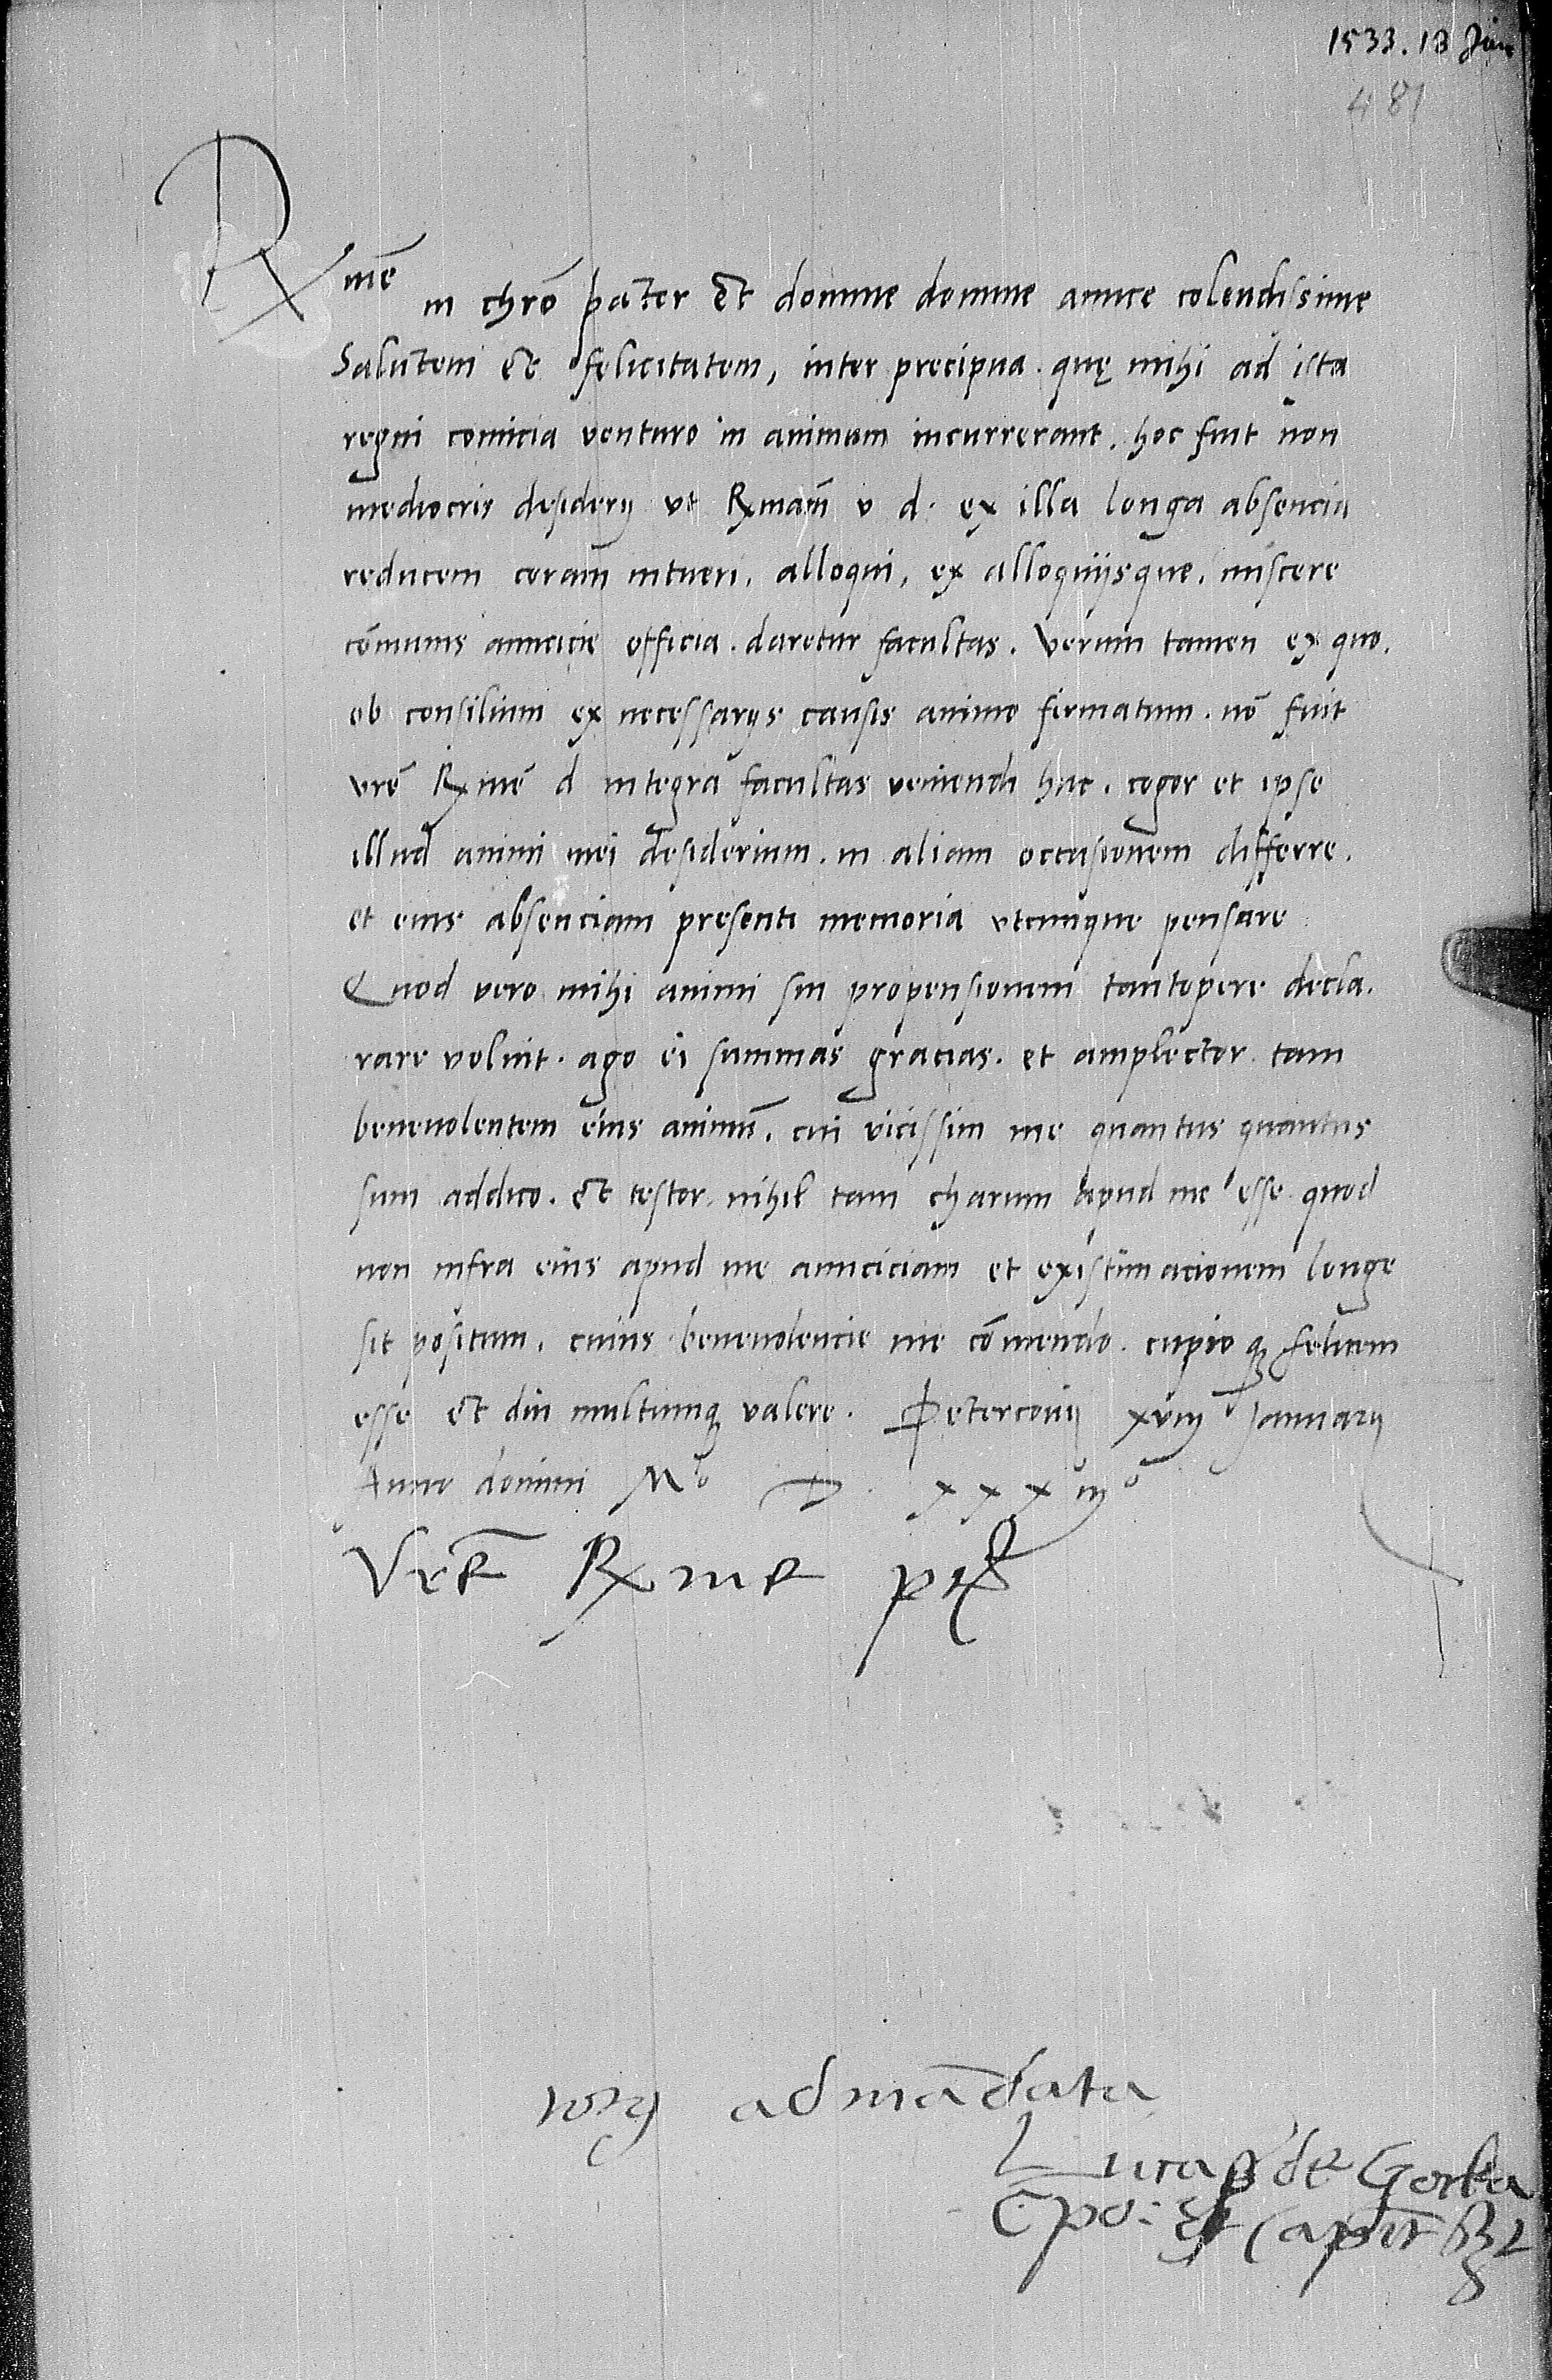 1533. 18 Jan
481
Rx me in chro pater Et domine domine amice colendissime
Salutem et felicitatem, inter precipua. quę mihi ad ista
regni comicia venturo in animum incurrerant. hoc fuit non
mediocris desiderij vt Rxmam v d. ex illa longa absencia
reducem coram intueri. alloqui, ex alloquijsque. miscere
comunis amicicie officia. daretur facultas. Verum tamen ex quo.
ob consilium ex necessarijs causis animo firmatum. no fuit
vre Rxme d integra facultas veniendi huc. cogor et ipse
illud animi mei desiderium. in aliam occasionem differre.
et eius absenciam presenti memoria vtcumque pensare
Quod vero mihi animi sui propensionem tantopere decla.
rare voluit. ago ei summas gracias. et amplector tam
benevolentem eius animu. cui vicissim me quantus quantus
sum addico. Et testor. nihil tam charum apud me esse quod
non infra eius apud me amiciciam et existimacionem longe
sit positum. cuius benevolencie me comendo. cupio q felicem
esse Et diu multumq valere. Petercovij xviij Januarij
Anno domini Mo D. xxxiijo
Vre Rxme p
ad madata
Lucas de Gorka
Cpo: Et Capit